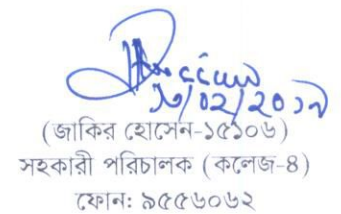 (জাকির হোসেন-১৫১০৬)
সহকারী পরিচালক (কলেজ-৪)
ফোন: ৯৫৫৬০৬২